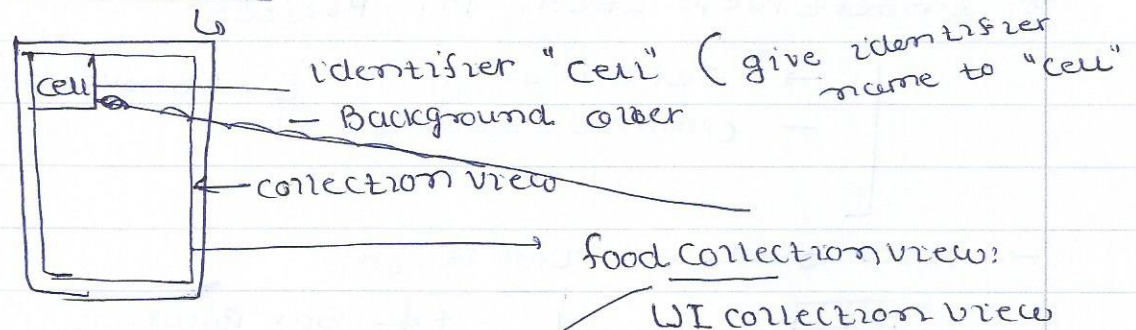 cell
identifier "cell" (give identifier
name to "cell"
- Background
← collection view
food collection view:
UI collection view